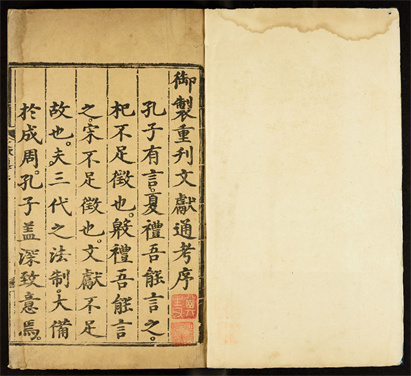 御製重刊文獻通考序
孔子有言。夏禮吾能言之。
杞不足徵也。殷禮吾能言
之。宋不足徵也。文獻不足
故也。夫三代之法制。大備
於成周。孔子盖深致意焉。